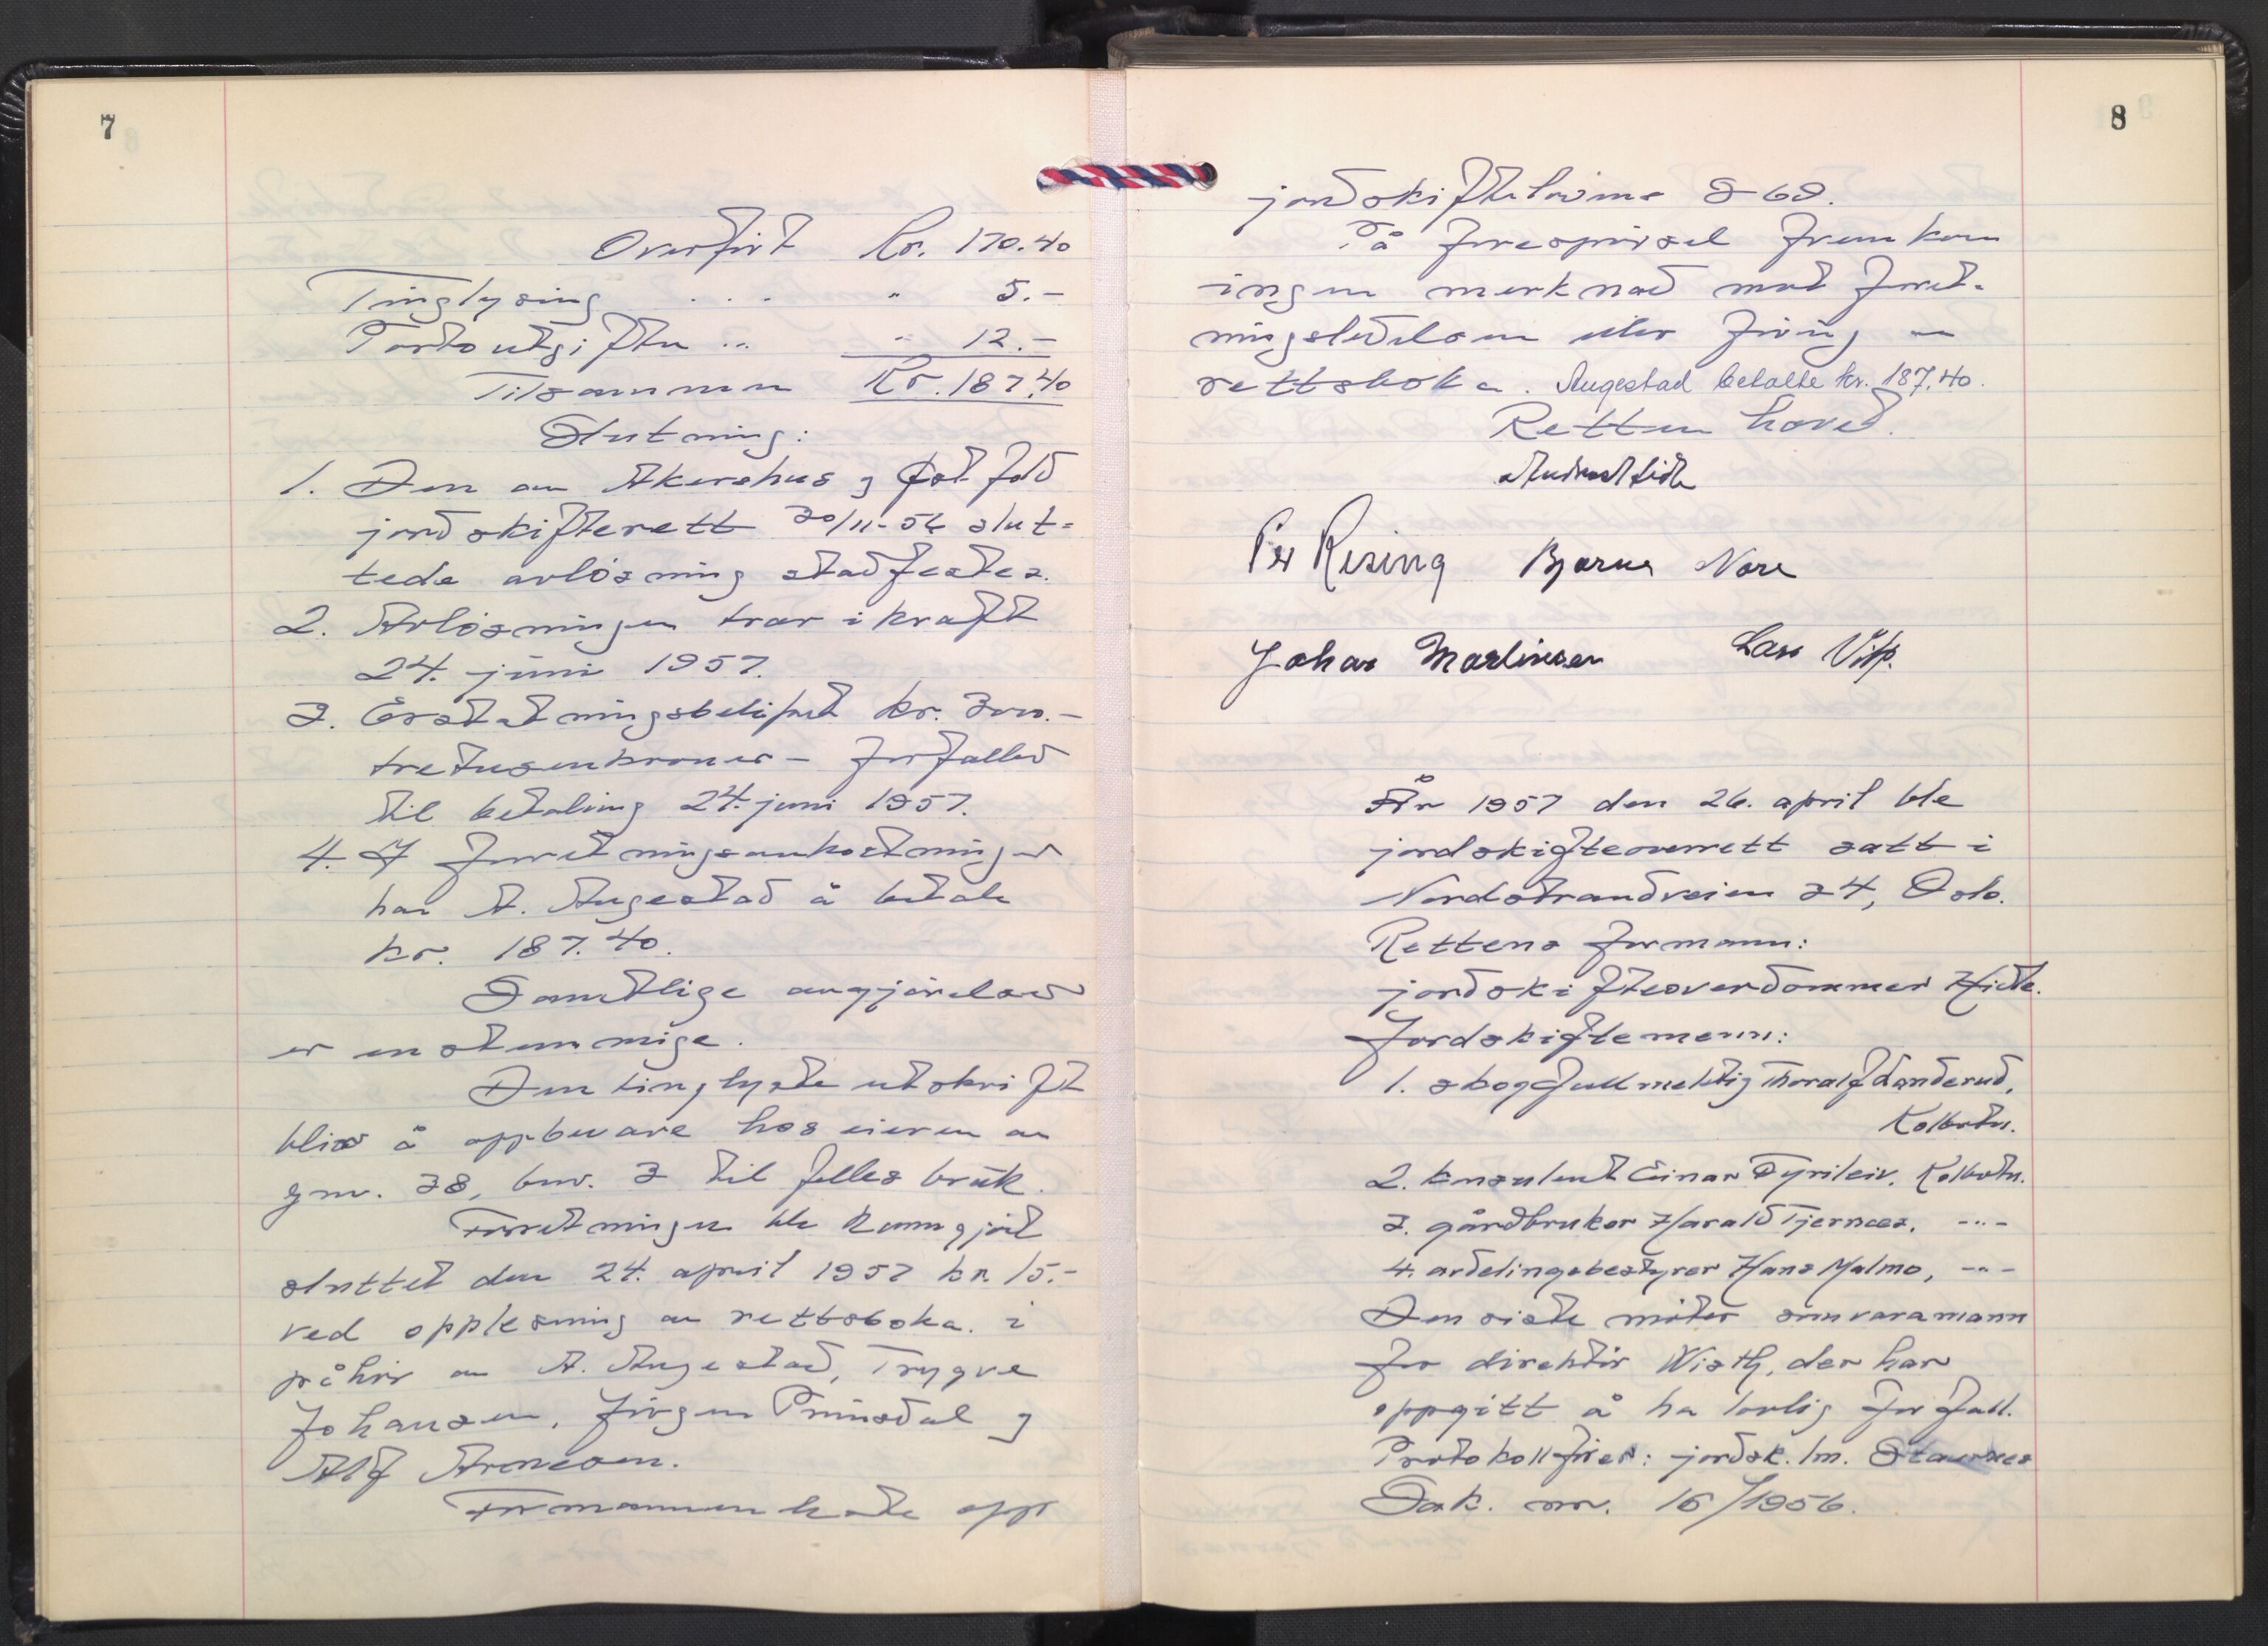 7
Overført Kr. 170.40
Tinglysing . . . " 5.-
Portoutgifter .. " 12.-
Tilsammen Kr. 187.40
Slutning:
1. Den av Akershus og Østfold
jordskifterett 30/11-56 slut-
tede avløsning stadfestes.
2. Avløsningen trær i kraft
24. juni 1957.
3. Erstatningsbeløpet kr. 3000.-
tretusenkroner - forfaller
til betaling 24. juni 1957.
4. I forretningsomkostninger
har A. Augestad å betale
kr. 187.40.
Samtlige avgjørelser
er enstemmige.
Den tinglyste utskrift
blir å oppbevare hos eieren av
gnr. 38, bnr. 3 til felles bruk.
Forretningen ble kunngjort
sluttet den 24. april 1957 kr. 15.-
ved opplesning av rettsboka i
påhør av A. Augestad, Trygve
Johansen, Jørgen Prinsdal og
Alf Arnesen.
Formannen leste opp
8
jordskiftelovens § 68.
På forespørsel fremkom
ingen merknad mot forret-
ningsledelsen eller føring av
rettsboka. Augestad betalte kr. 187.40.
Retten hevet.
Per Rising Bjarne Nore
Johan Martinsen Lars
År 1957 den 26. april ble
jordskifteoverrett satt i
Nordstrandveien 34, Oslo.
Rettens formann:
jordskifteoverdommer
Jordskiftemenn:
1. skogfullmektig Thoralf Landerud,
Kolbotn.
2. konsulent Einar Tyrileiv. Kolbotn.
3. gårdbruker Harald Tjernæs. -"-
4. avdelingsbestyrer Hans Malmo, -"-
Den siste møter som varamann
for direktør Wisth, der har
oppgitt å ha lovlig forfall.
Protokollfører: jordsk.lm. Staurnes
Sak. nr. 16/1956.